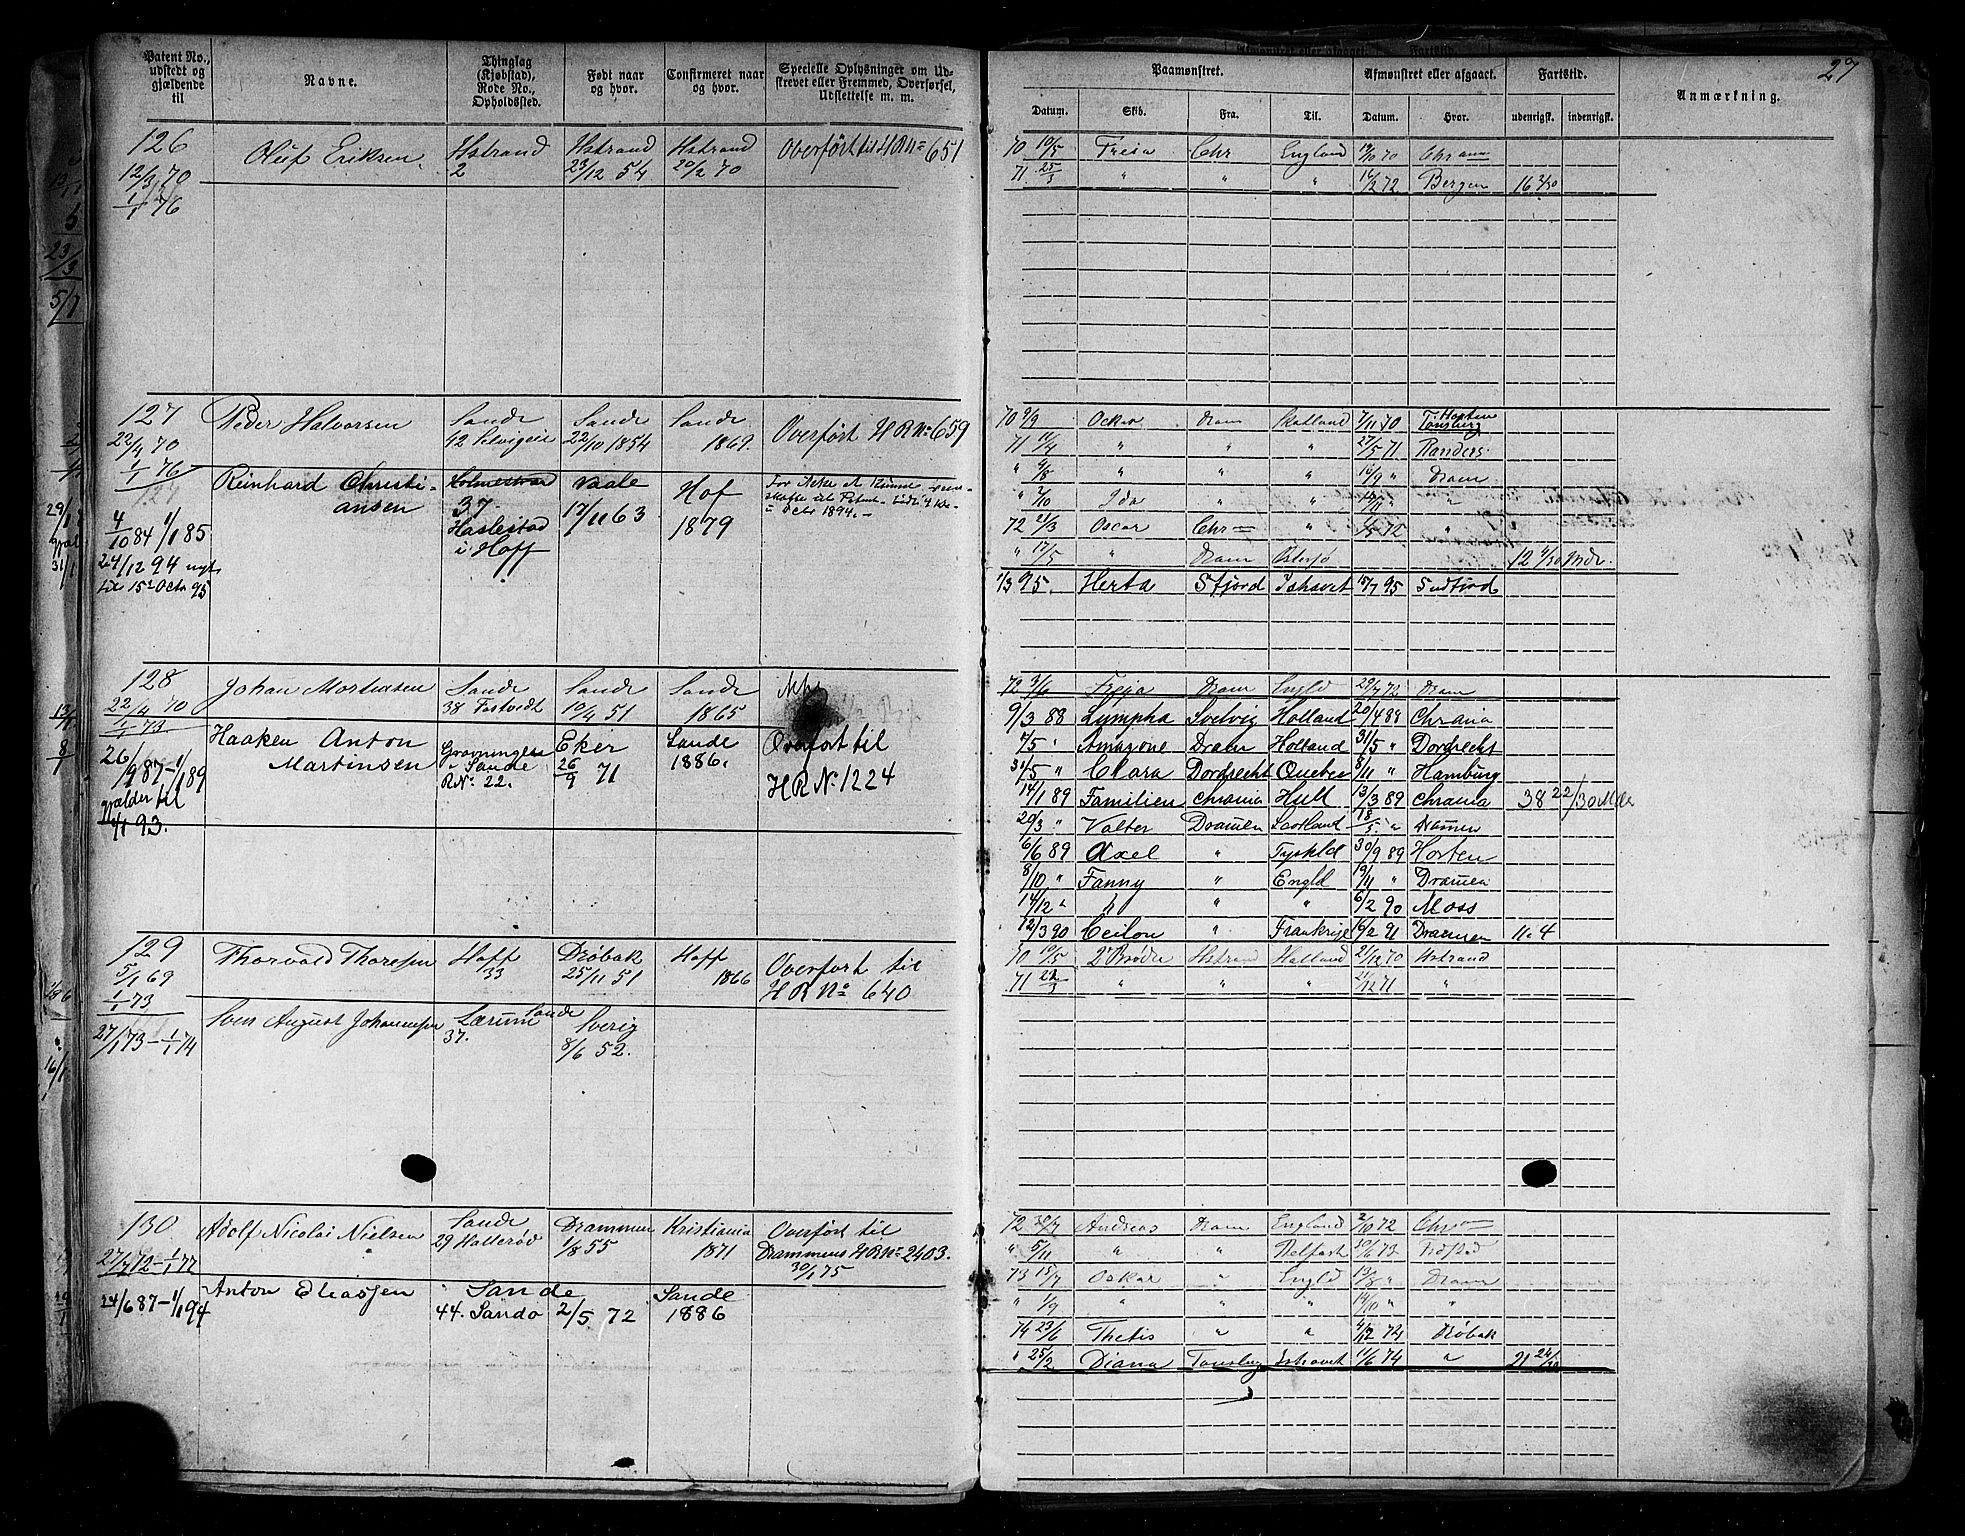 Patent No., udstedt og gjældende til
Navne.
Thinglag (Kjøbstad), Rode No., Opholdssted.
Født naar og hvor.
Confirmeret naar og hvor.
Specielle Oplysninger om Udskrevet eller Fremmed, Overførsel, Udslettelse m. m.
126
Oluf Eriksen Hstrand Hstrand Hstrand Overført til H R No 651
12/3 70 2 23/12 54 20/2 70
1/1 76
127 Peder Halvorsen Sande Sande Sande Overført H R No 659
22/4 70 42 Selvigvis 22/10 1854 1869.
1/1 76
Reinhard Christi- Holmestrand Vaale Hof
ansen 37. 17/11 63 1879
4/10 84 1/1 85 Haslestad
i Hoff
Octbr 1894.
24/12 94 nyt
til 15de Octr 95
128 Johan Mortensen Sande Sande Sande
22/4 70 38 10/4 51 1865
1/1 73
Haaken Anton Gravningen Eker Sande Overfort til
Martinsen i Sande 26/9 71 1886. H R No. 1224
26/9 87 - 1/1 89 R No. 22.
gjælder til
1/1 93.
129 Thorvald Thoresen Hoff Drøbak Hoff Overfort til
5/1 69 33 25/11 51 1866 H R No 640
1/1 73
Sven August Johannesen Lærum Sande Sverig
27/1 73 - 1/1 74 37. 8/6 52.
130 Adolf Nicolai Nielsen Sande Drammen Kristiania Overført til
27/7 72 - 1/1 77 29 Hallerød 1/8 55 1871 Drammens H R No 2403.
30/1 75
Anton Eliassen Sande Sande
24/6 87 - 1/1 94 44. Sando 2/5 72 1886
27
Paamønstret.
Afmønstret eller afgaaet.
Fartstid.
Anmærkning.
Datum. Skib. Fra. Til. Datum. Hvor. udenrigsk. indenrigsk.
70 10/5 Freia Chr England 19/10 70 Chrania
71 25/3 " " " 16/2 72 Bergen 16 3/30
70 9/9 Oskar Dram Skotland 7/11 70 Horten Tønsberg
71 11/4 " " " 27/5 71 Randers
" 9/8 " " " 16/9 " Dram
" 2/10 Ida " " "
72 21/3 Oscar Chr " 72 "
" 17/5 " Dram Østersø 12 4/30 Mdr.
1/3 95. Herta Sfjord Ishavet 15/7 95 Sndfjord
72 3/6 Freja Dram Engld 29/7 72 Dram
9/3 88 Lympha Svelvig Holland 20/4 88 Chrania
4/5 " Amazone Dram Holland 31/5 " Dordrecht
31/5 " Clara Dordrecht Quebec 8/11 " Hamburg
14/1 89 Familien Chrania Hull 13/3 89 Chrania 38 22/30 Mdr
29/3 " Valter Dramen Skotland 18/5 " Dramen
6/6 89 Axel " Tyskld 30/9 89 Horten
8/10 " Fanny " Engld 19/11 " Dramen
14/12 " " " " 6/2 90 Moss
12/3 90 Ceilon " Frankrige 16/2 91 Dramen 11. 4
70 10/5 2 Brødre Hstrand Holland 21/12 70 Hstrand
71 22/3 " " " 21/12 71 "
72 30/7 Andreas Dram England 2/10 72 Chra
" 5/11 " " Belfast 20/6 73
73 15/7 Oskar " Engld 13/8 " Dram
" 1/9 " " " 14/10 " "
74 23/6 Thetis " " 4/12 74 Drøbak
" 25/2 Diana Tønsberg Ishavet 11/6 74 " 21 24/30